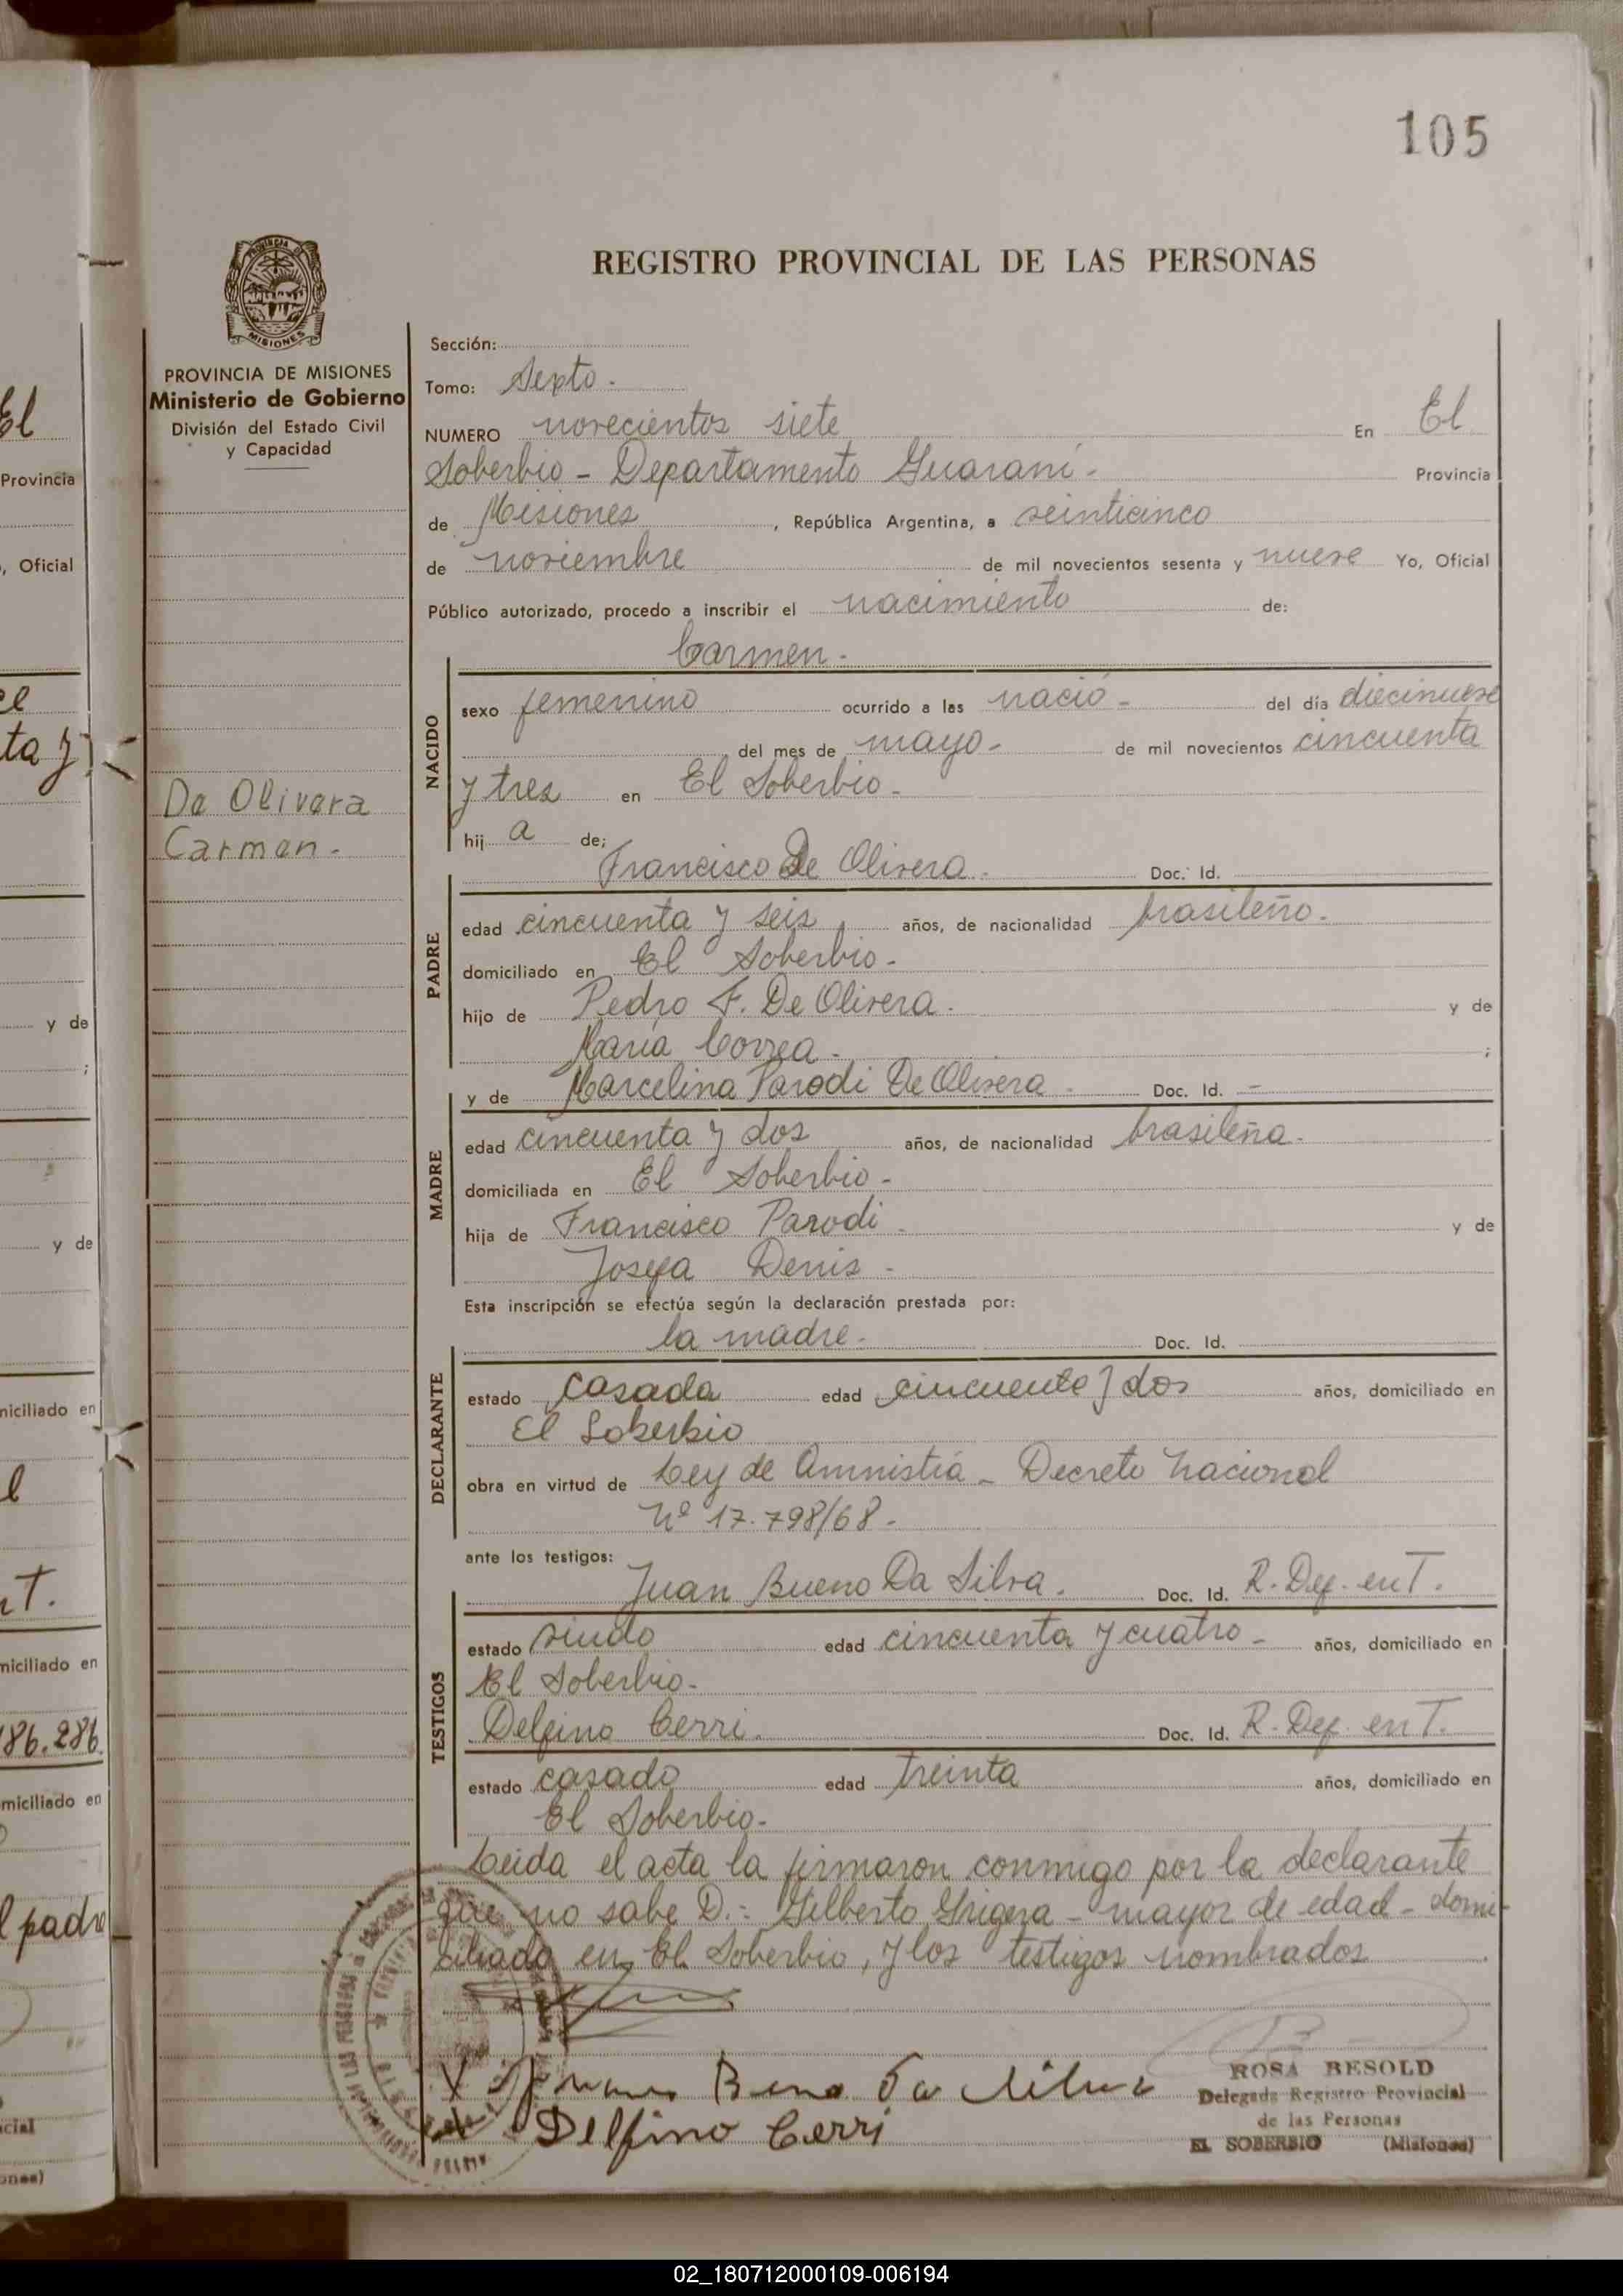 105
REGISTRO PROVINCIAL DE LAS PERSONAS
PROVINCIA DE MISIONES
Ministerio de Gobierno
División del Estado Civil
y Capacidad
De Olivera
Carmen.-
Sección:
Tomo: Sexto.-
NUMERO novecientos siete En El
Soberbio - Departamento Guaraní- Provincia
de Misiones, República Argentina, a veinticinco
de noviembre de mil novecientos sesenta y nueve Yo, Oficial
Público autorizado, procedo a inscribir el nacimiento de:
Carmen.-
NACIDO
sexo femenino ocurrido a las nació - del día diecinueve
del mes de mayo- de mil novecientos cincuenta
y tres en El Soberbio.-
hij a de;
Francisco De Olivera.- Doc. Id.
PADRE
edad cincuenta y seis años, de nacionalidad brasileño.-
domiciliado en El Soberbio.-
hijo de Pedro F. De Olivera.- y de
María Correa.- ;
y de Marcelina Parodi De Olivera.- Doc. Id. -
MADRE
edad cincuenta y dos años, de nacionalidad brasileña.-
domiciliada en El Soberbio.-
hija de Francisco Parodi.- y de
Josefa Denis.-
Esta inscripción se efectúa según la declaración prestada por:
la madre.- Doc. Id.
DECLARANTE
estado Casada edad cincuenta y dos años, domiciliado en
El Soberbio
obra en virtud de Ley de Amnistía - Decreto Nacional
Nº 17.798/68.-
ante los testigos:
Juan Bueno Da Silva.- Doc. Id. R. Def. en T.
TESTIGOS
estado viudo edad cincuenta y cuatro - años, domiciliado en
El Soberbio.-
Delfino Cerri.- Doc. Id. R. Def. en T.
estado casado edad treinta años, domiciliado en
El Soberbio.-
Leida el acta la firmaron conmigo por la declarante
que no sabe D.: Gilberto Grigera - mayor de edad - domi-
ciliado en El Soberbio, y los testigos nombrados
Delfino Cerri
ROSA BESOLD
Delegada Registro Provincial
de las Personas
EL SOBERBIO (Misiones)
El
Provincia
, Oficial
ta y
y de
;
y de
miciliado en
l
T.
miciliado en
186.286
miciliado en
l padre
cial
ones)
02_180712000109-006194